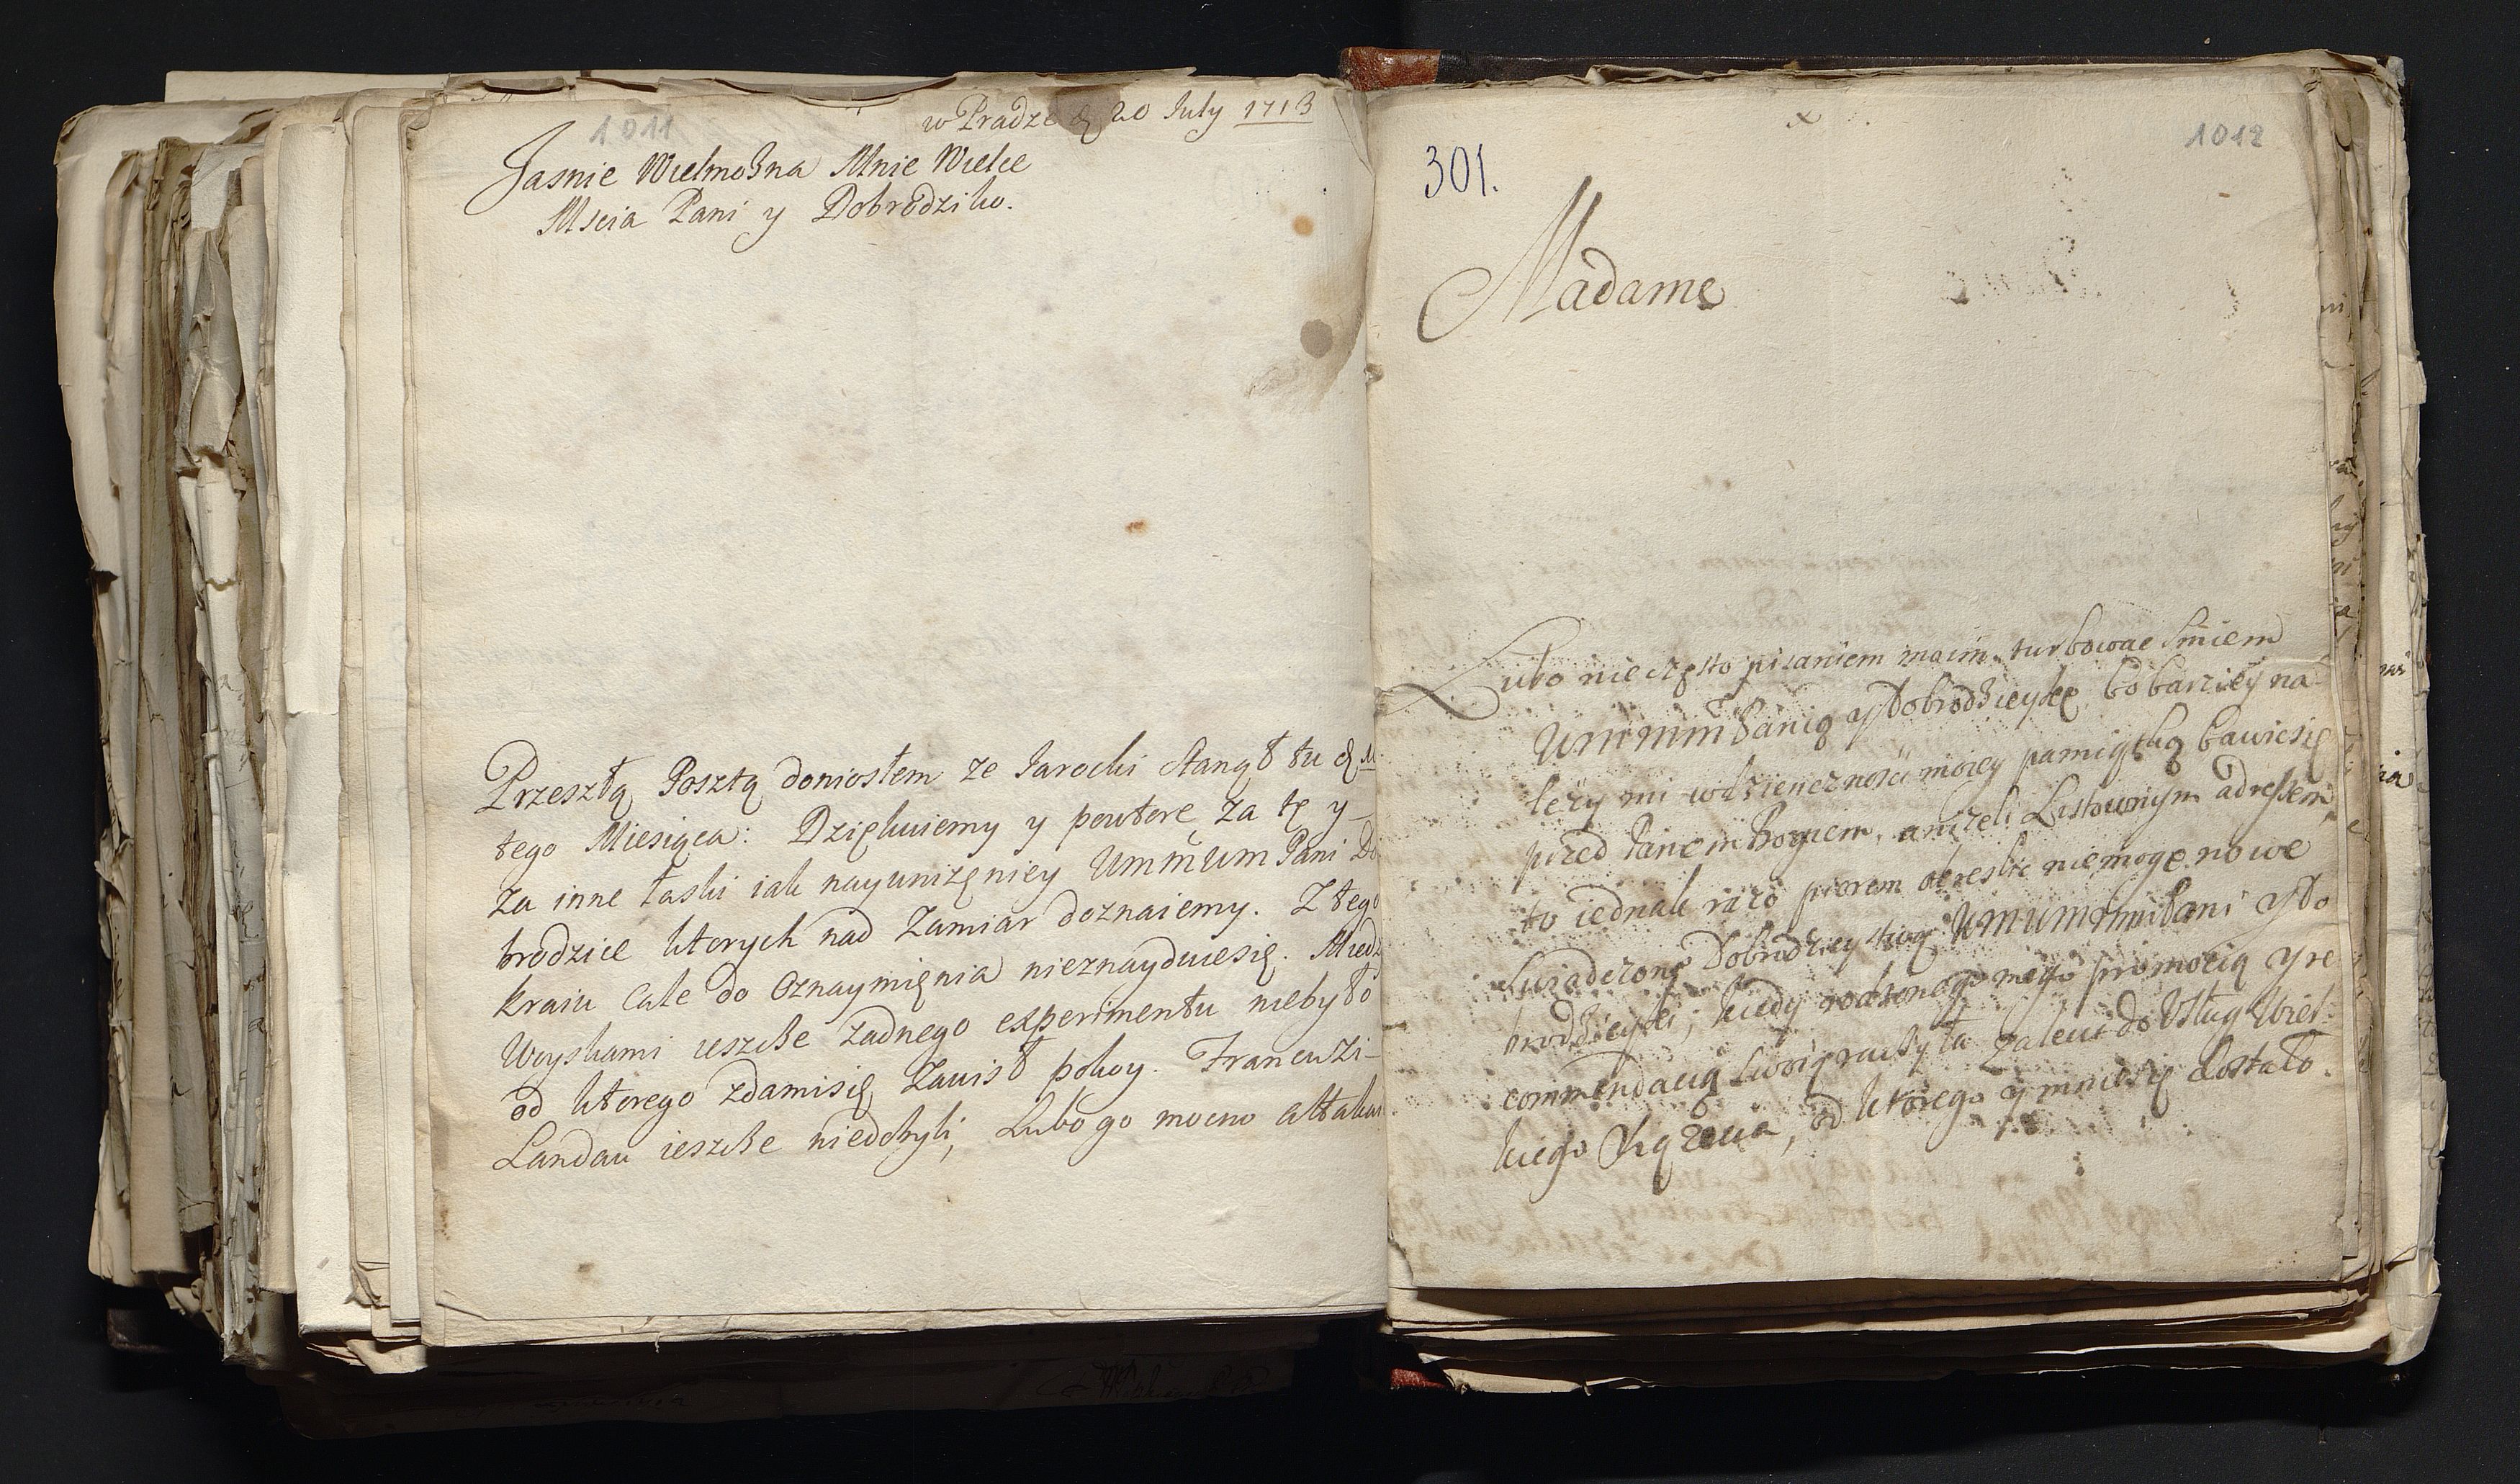 1011
w Pradze d 20 July 1713
Jasnie Wielmozna Mnie Wielce
Mscia Pani y Dobrodziko.
Przeszłą Posztą doniosłem ze Jarocki stanął tu d
tego Miesiąca: Dziękuiemy y powtore za tę y
za inne łaski iak nayunizęniey Pani Do
brodzice ktorych nad Zamiar doznaiemy. Z tego
kraiu Cale do Oznaymięnia nieznayduiesię. Miedz
Woyskami ieszcze zadnego experimentu niebyło
od ktorego zdamisię Zawisł pokoy. Francuzi
Landau ieszcze niedobyli, Lubo go mocno attaku
1012
301.
Madame
Lubo nieczęsto pisaniem moim turbowac smiem
Panią y Dobrodzieykę, bo barziey na
lezy mi wdzięcznosci moiey pamiątką bawicsię
przed Panem Bogiem, anizeli Listownym adressem,
to iednak piorem okreslic niemogę nowe
swiadczone Dobrodzieystwo Pani y Do
brodzieyki; kiedy rodzonego mego promocią y re
commendacią swoią raczyła zalecic do Usług Wiel
kiego Xiązęcia, od ktorego y mniesię dostało.